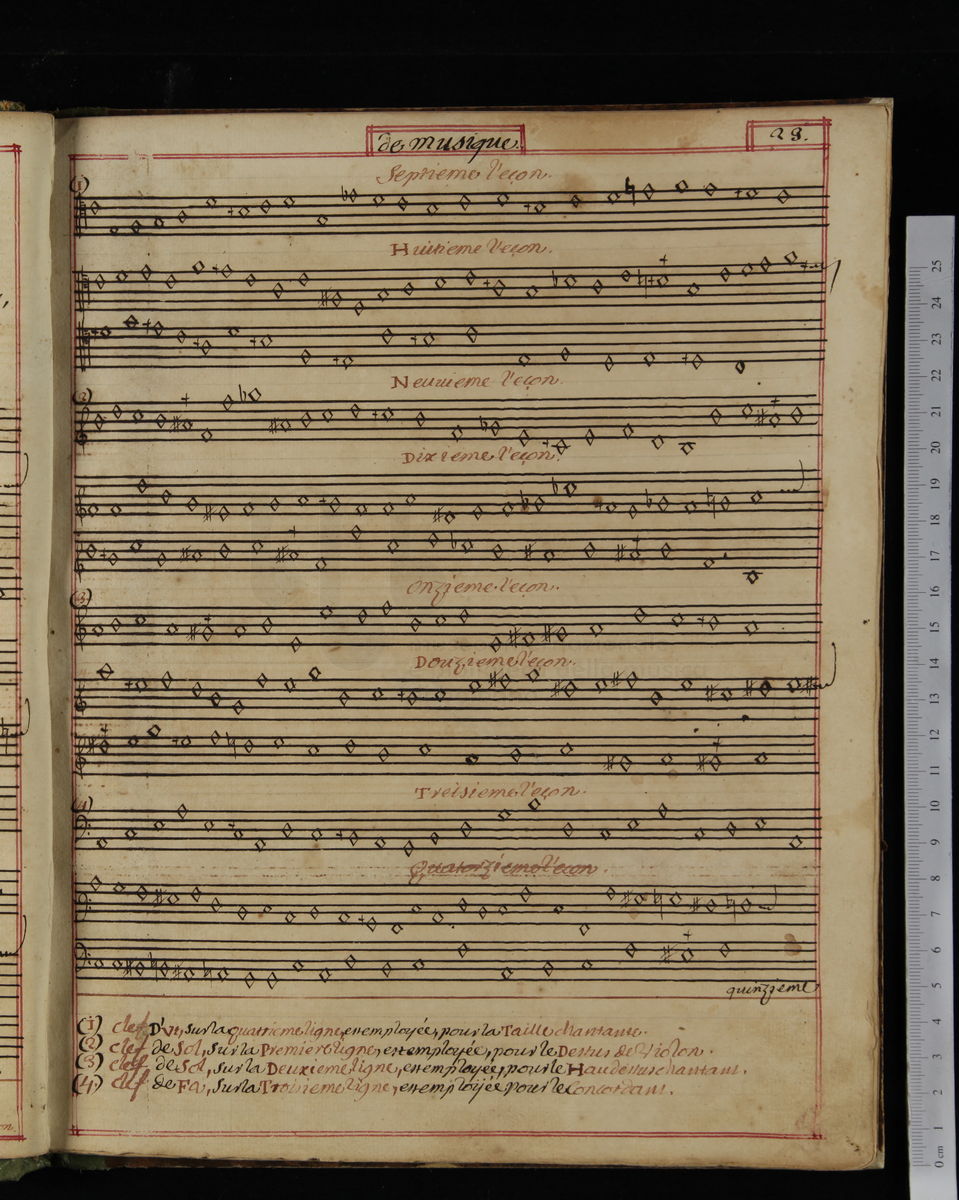 de musique.
28.
Septieme l'eçon.
(1)
Huitieme l'eçon.
Neuvieme l'eçon.
(2)
Dixieme l'eçon.
Onzieme l'eçon.
(3)
Douzieme l'eçon.
Treisieme l'eçon.
(4)
Quatorzieme l'eçon.
quinzieme
(1) clef D'ut, sur la quatrieme ligne, en employée, pour la Taille chantante.
(2) clef de Sol, sur la Premiere ligne, en employée, pour le Dessus de Violon.
(3) clef de Sol, sur la Deuxieme ligne, en employée, pour le Haudessus chantant.
(4) clef de Fa, sur la Troisieme ligne, en employée pour le Concordant.
25
24
23
22
21
20
19
18
17
16
15
14
13
12
11
10
9
8
7
6
5
4
3
2
1
0 cm